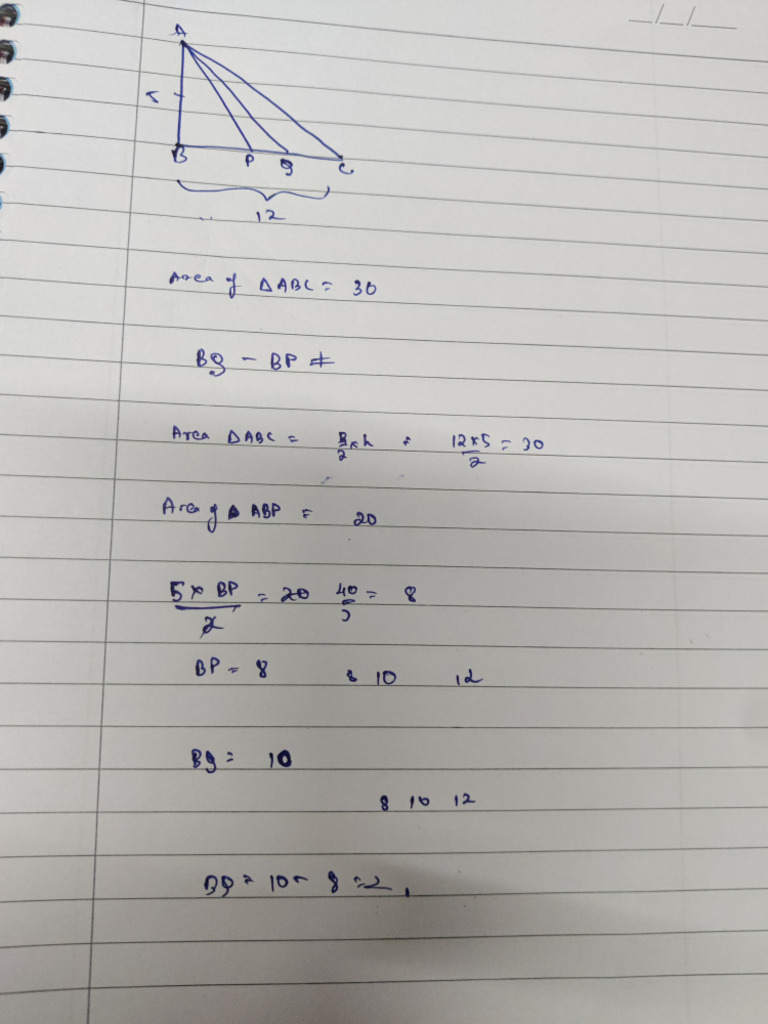 A
5
B P Q C
12
Area of △ABC = 30
BQ - BP ≠
Area △ABC = B/2 × h = 12×5/2 = 30
Area of △ ABP = 20
5 × BP/2 = 20 40/5 = 8
BP = 8 8 10 12
BQ = 10
8 10 12
= 10 - 8 = 2